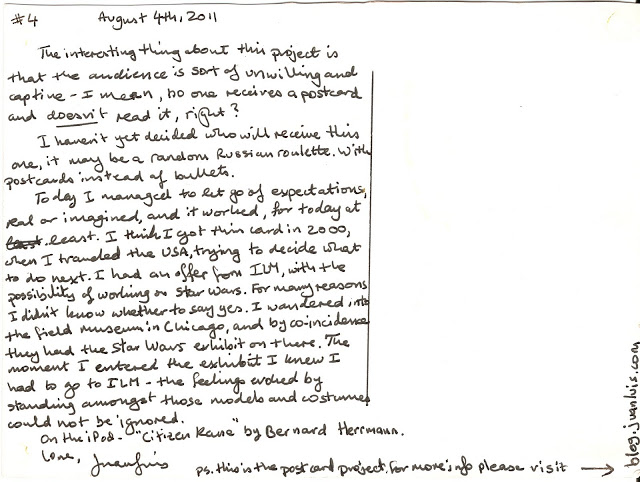 #4 August 4th, 2011
The interesting thing about this project is
that the audience is sort of unwilling and
captive - I mean, no one receives a postcard
and doesn't read it, right?
I haven't yet decided who will receive this
one, it may be a random Russian roulette. With
postcards instead of bullets.
Today I managed to let go of expectations,
real or imagined, and it worked, for today at
least. I think I got this card in 2000,
when I traveled the USA, trying to decide what
to do next. I had an offer from ILM, with the
possibility of working on Star Wars. For many reasons
I didn't know whether to say yes. I wandered into
the field museum in Chicago, and by co-incidence
they had the Star Wars exhibit on there. The
moment I entered the exhibit I knew I
had to go to ILM - the feelings evoked by
standing amongst those models and costumes
could not be ignored.
On the iPod - "Citizen Kane" by Bernard Herrmann.
Love, Juanluis
ps. this is the postcard project. For more info please visit →
blog.juanluis.com